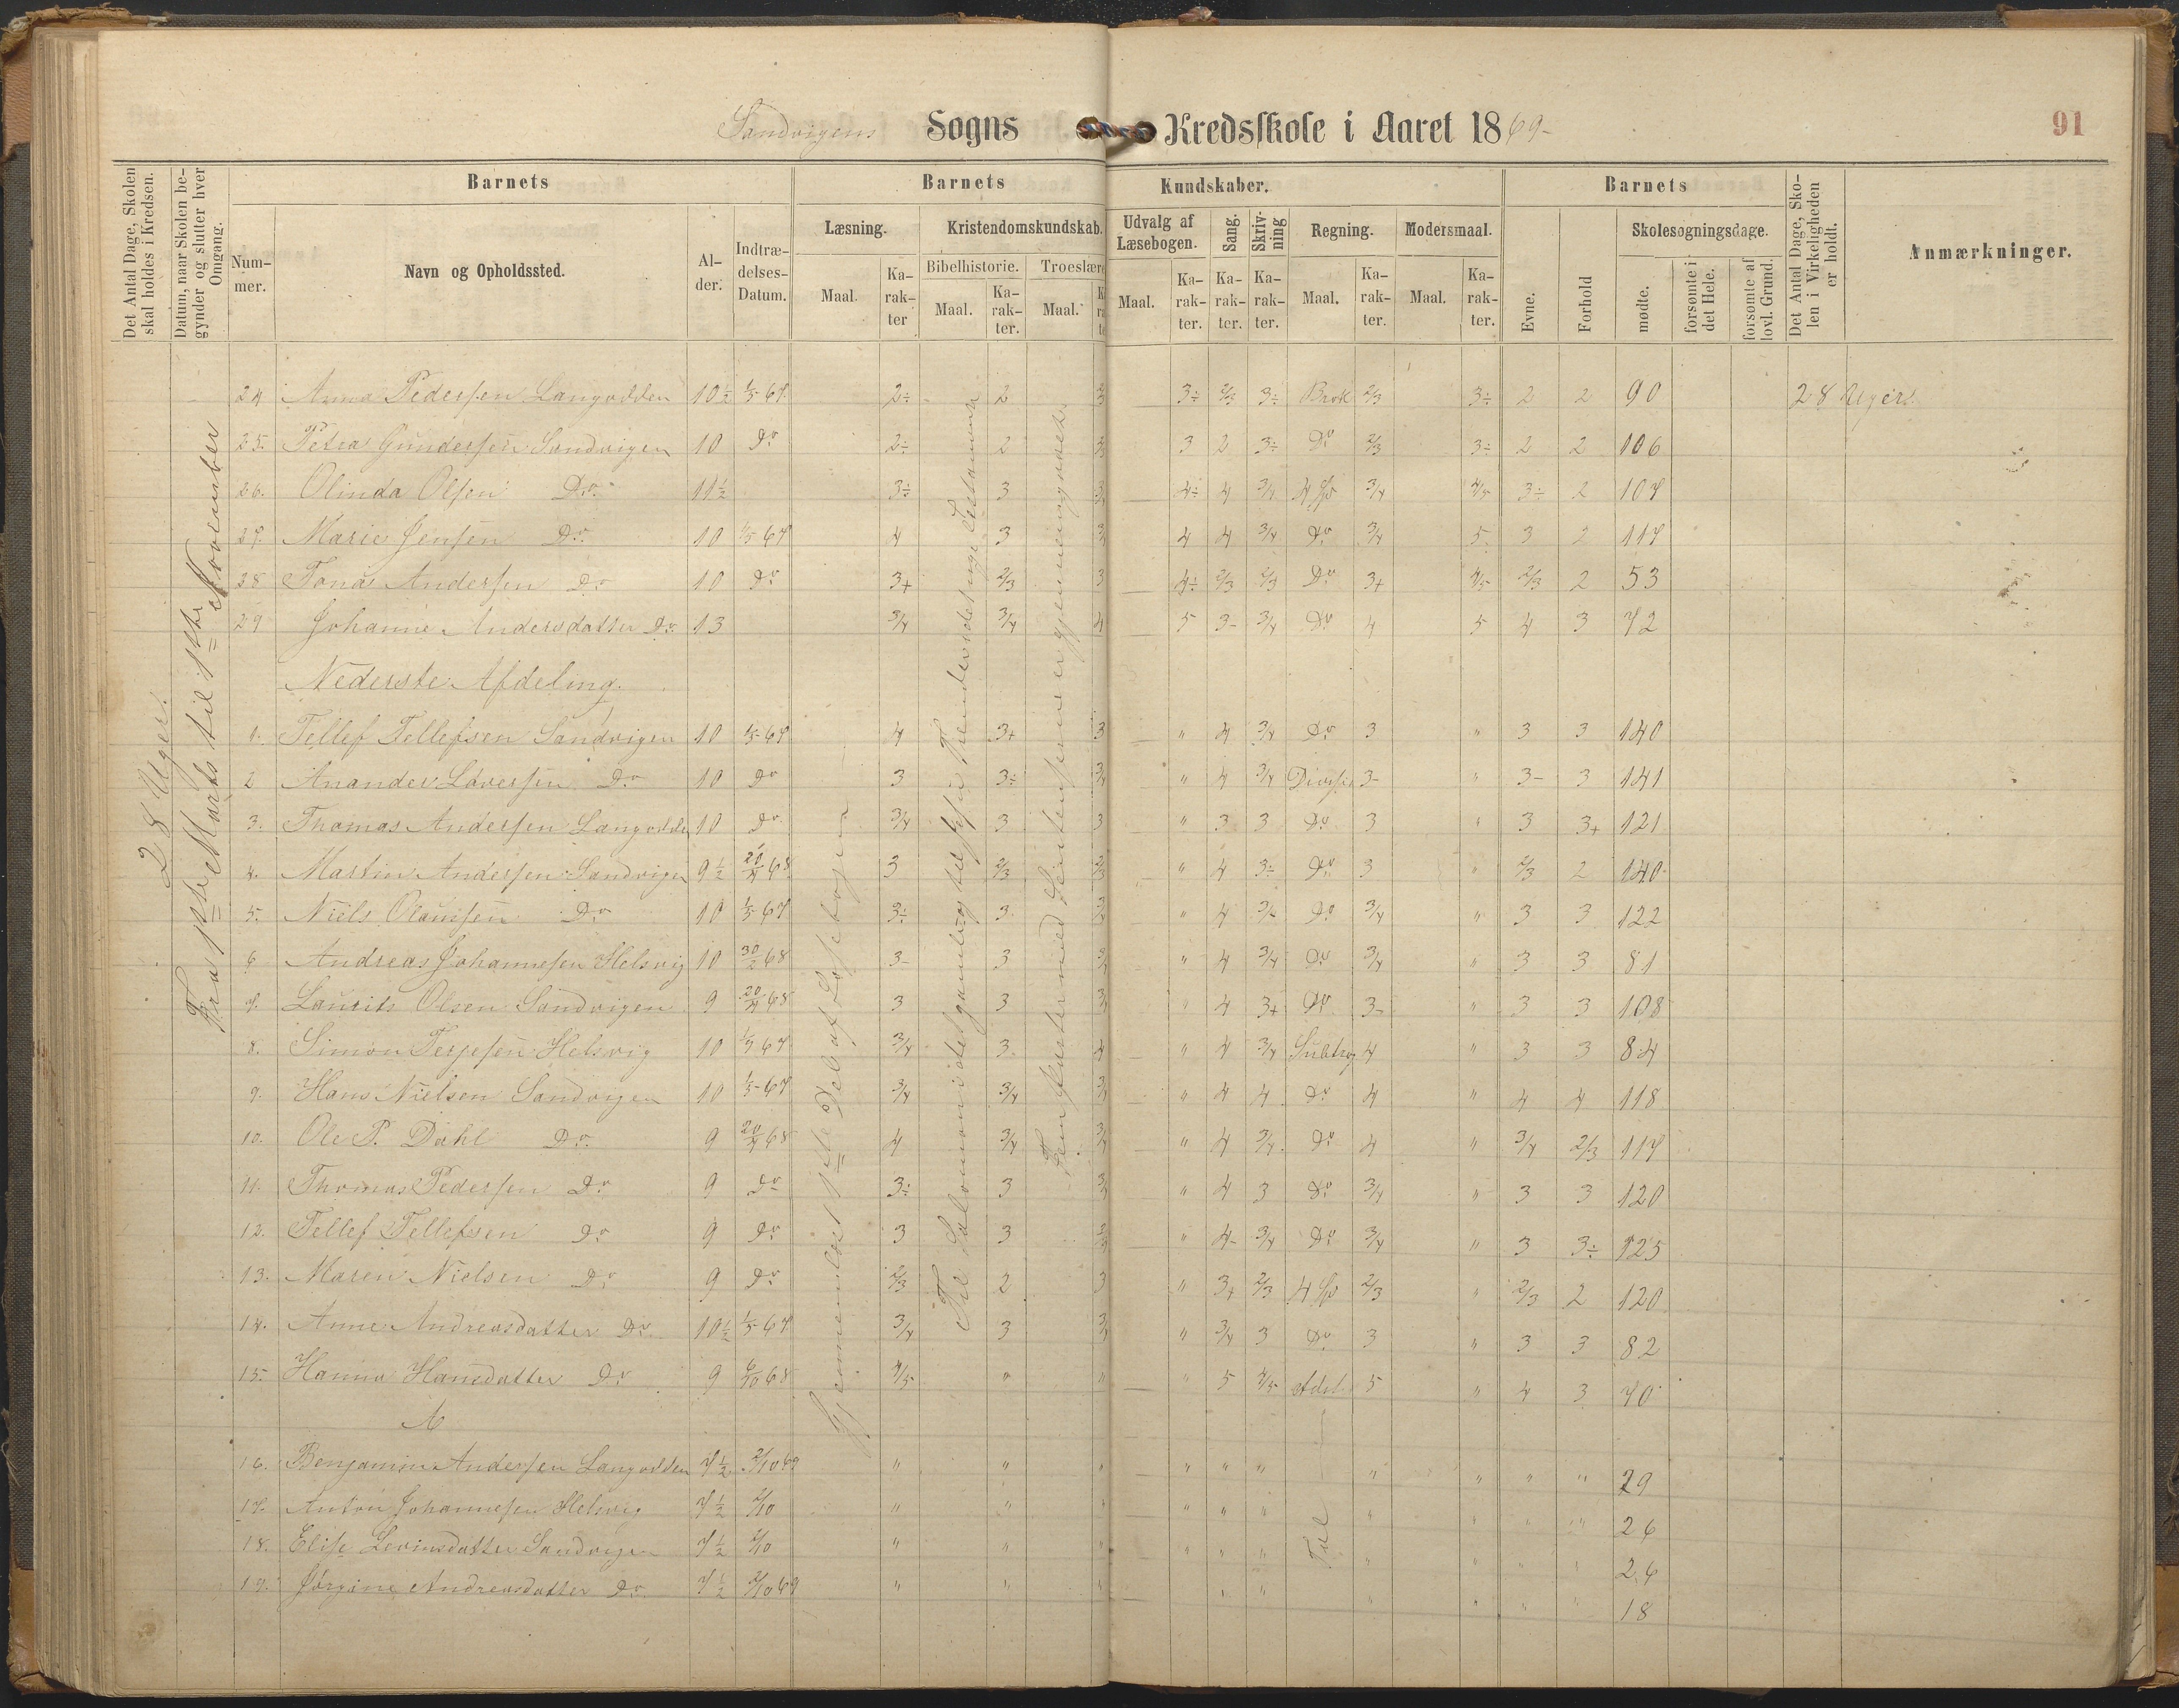 Sandvigens Sogns Kredsskole i Aaret 1869-
91
Det Antal Dage, Skolen skal holdes i Kredsen.
Datum, naar Skolen begynder og slutter hver Omgang.
Barnets
Barnets
Kundskaber.
Barnets
Det Antal Dage, Skolen i Virkeligheden er holdt.
Anmærkninger.
Nummer.
Navn og Opholdssted.
Alder.
Indtrædelses-Datum.
Læsning.
Kristendomskundskab.
Udvalg af Læsebogen.
Sang.
Skrivning
Regning.
Modersmaal.
Evne.
Forhold
Skolesøgningsdage.
Bibelhistorie.
Troeslære
Maal.
Karakter
Maal.
Karakter.
Maal.
Maal.
Karakter.
Karakter.
Karakter.
Maal.
Karakter.
Maal.
Karakter.
mødte.
forsømte i det Hele.
forsømte af lovl. Grund.
28 Uger.
Fra 1ste Marts til 1ste November
Gjennemlæst 1ste Del af Læsebogen
24 Anna Pedersen Langodden 10½ 1/5 67 2÷ 2 2/3 3÷ 2/3 3÷ Brok 2/3 3÷ 2 2 90 28 Uger.
25. Petra Gundersen Sandvigen 10 Do 2÷ 2 2/3 3 2 3÷ Do 2/3 3÷ 2 2 106
26. Olinda Olsen Do 11½ 3÷ 3 3/4 4÷ 4 3/4 4 Sp 3/4 4/5 3÷ 2 107
27. Marie Jensen Do 10 1/5 67 4 3 3/4 4 4 3/4 Do 3/4 5 3 2 117
28 Tonas Andersen Do 10 Do 3+ 2/3 3 4÷ 2/3 2/3 Do 3+ 4/5 2/3 2 53
29 Johanne Andersdatter Do 13 3/4 3/4 4 5 3- 3/4 Do 4 5 4 3 72
Nederste Afdeling.
1. Tellef Tellefsen Sandvigen 10 1/5 67 4 3+ 3 " 4 3/4 Do 3 " 3 3 140
2 Anander Løversen Do 10 Do 3 3÷ 3/4 " 4 3/4 3- " 3- 3 141
3. Thomas Andersen Langodden 10 Do 3/4 3 3 " 3 3 Do 3 " 3 3+ 121
4. Martin Andersen Sandvigen 9½ 20/4 68 3 2/3 2/3 " 4 3÷ Do 3 " 2/3 2 140
5. Niels Olausen Do 10 1/5 67 3÷ 3 " 4 3/4 Do 3/4 " 3 3 122
6 Andreas Johannesen Helsvig 10 30/2 68 3- 3 3/4 " 4 3/4 Do 3/4 " 3 3 81
7. Laurits Olsen Sandvigen 9 20/4 68 3 3 3/4 " 4 3+ Do 3- " 3 3 108
8. Simon Terjesen Helsvig 10 1/5 67 3/4 3 4 " 4 3/4 Subtrog 4 " 3 3 84
9. Hans Nielsen Sandvigen 10 1/5 67 3/4 3/4 3/4 " 4 4 Do 4 " 4 4 118
10. Ole P. Dahl Do 9 20/4 68 4 3/4 3/4 " 4 3/4 Do 4 " 3/4 2/3 117
11. Thomas Pedersen Do 9 Do 3÷ 3 3/4 " 4 3 Do 3/4 " 3 3 120
12. Tellef Tellefsen Do 9 Do 3 3 " 4- 3/4 Do 3/4 " 3 3÷ 125
13. Maren Nielsen Do 9 Do 2/3 2 3 " 3+ 2/3 4 Sp 2/3 " 2/3 2 120
14. Anne Andreasdatter Do 10½ 1/5 67 3/4 3 3/4 " 3/4 3 Do 3 " 3 3 82
15. Hanna Hansdatter Do 9 6/10 68 4/5 " " " 5 4/5 Adel 5 " 4 3 70
16. Benjamin Andersen Langodden 7½ 2/10 69 " " " " " " " " " " 29
17. Anton Johannesen Helsvig 7½ 2/10 " " " " " " " " " " 26
18. Elise Levinsdatter Sandvigen 7½ 2/10 " " " " " " Tal " " " " 26
19. Jørgine Andreasdatter Do 7½ 2/10 69 " " " " " " " " " 18